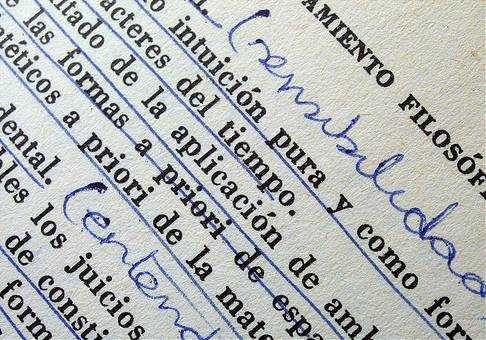 AMIENTO FILOSÓFI
(sensibilidad
o intuición pura y como for
acteres del tiempo.
ltado de la aplicación de amb
e las formas a priori de espa
ntéticos a priori de la mate
dental. (entend
bles los juicios
de consti
form